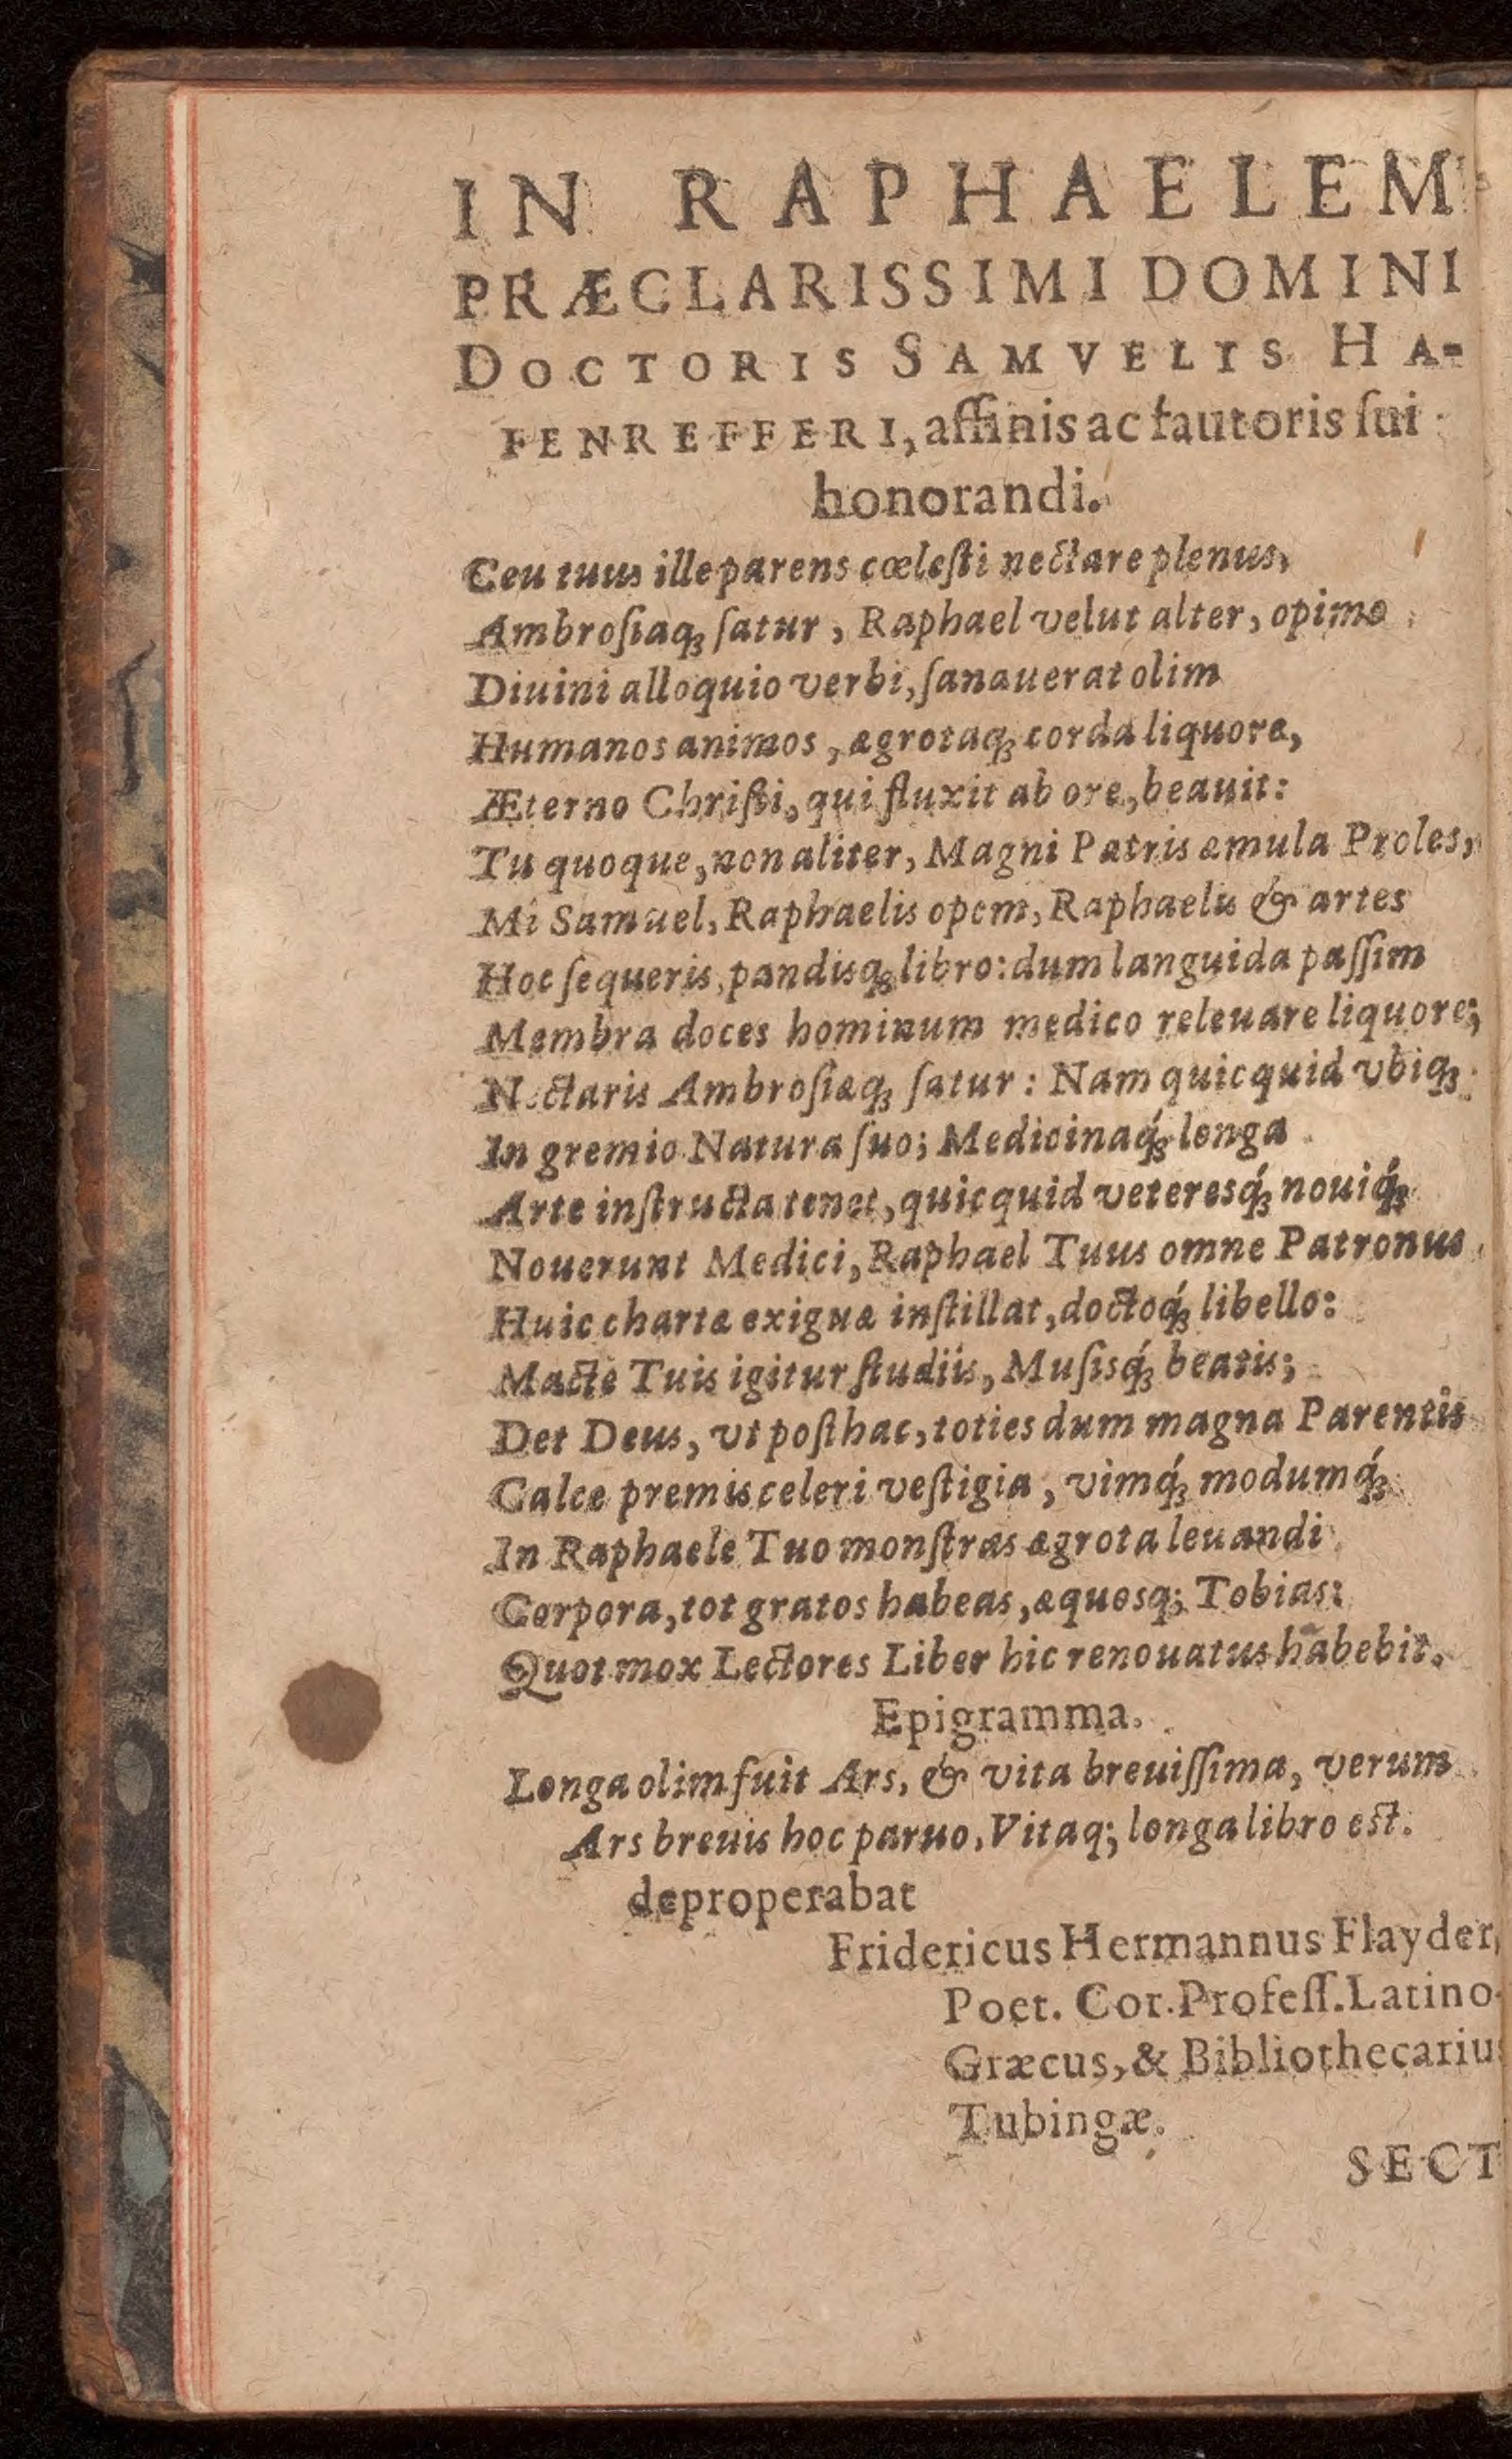 IN RAPHAELEM
PRÆCLARISSIMI DOMINI
DOCTORIS SAMVELIS HA-
FENREFFERI, affinis ac fautoris ſui
honorandi.
Ceu tuus ille parens cœleſti nectare plenus,
Ambroſiaq; ſatur, Raphael velut alter, opimo
Diuini alloquio verbi, ſanauerat olim
Humanos animos, ægrotaq; corda liquore,
Æterno Chriſti, qui fluxit ab ore, beauit:
Tu quoque, non aliter, Magni Patris æmula Proles,
Mi Samuel, Raphaelis opem, Raphaelis & artes
Hoc ſequeris, pandisq; libro: dum languida paſſim
Membra doces hominum medico releuare liquore;
Nectaris Ambroſiæq; ſatur: Nam quicquid vbiq;
In gremio Natura ſuo; Medicinaq́; longa
Arte inſtructa tenet, quicquid veteresq́; nouiq́;
Nouerunt Medici, Raphael Tuus omne Patronus
Huic chartæ exiguæ inſtillat, doctoq́; libello:
Macte Tuis igitur ſtudiis, Muſisq́; beatis;
Det Deus, vt poſthac, toties dum magna Parentis
Calce premis celeri veſtigia, vimq́; modumq́;
In Raphaele Tuo monſtras ægrota leuandi
Corpora, tot gratos habeas, æquosq; Tobias:
Quot mox Lectores Liber hic renouatus habebit.
Epigramma.
Longa olim fuit Ars, & vita breuiſſima, verum
Ars breuis hoc paruo, Vitaq; longa libro est.
deproperabat
Fridericus Hermannus Flayder,
Poet. Cor. Profeſſ. Latino-
Græcus, & Bibliothecarius
Tubingæ.
SECT